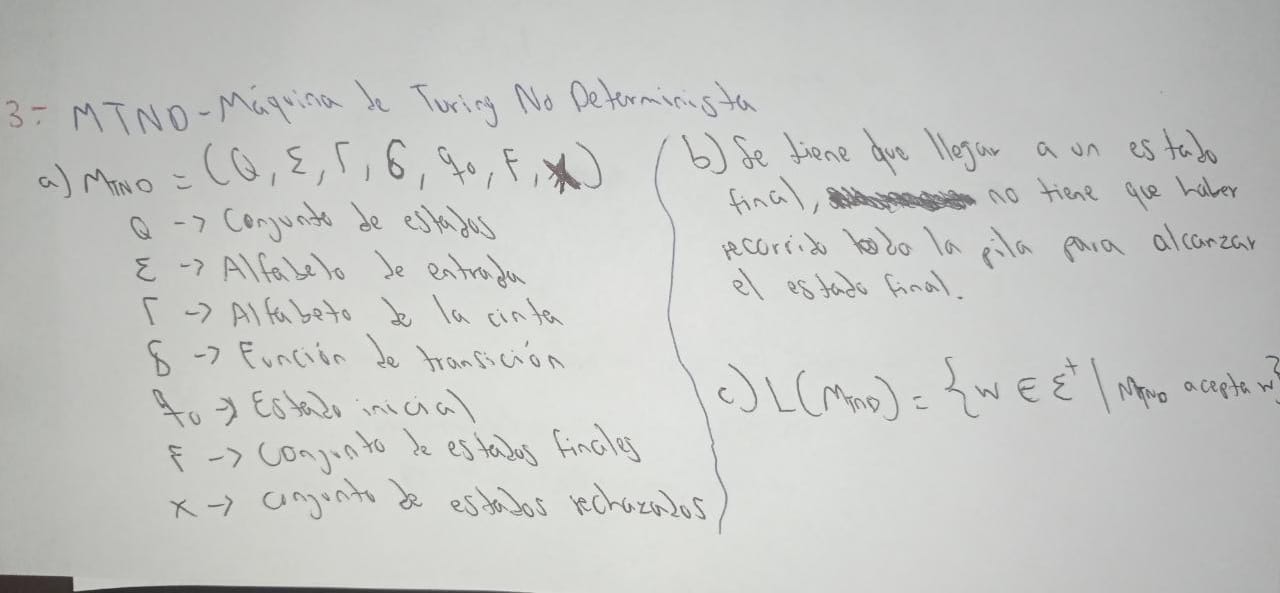 3- MTND - Máquina de Turing No Determinista
a) MTND = (Q, Σ, Γ, δ, q0, F, x)
Q -> Conjunto de estados
Σ -> Alfabeto de entrada
Γ -> Alfabeto de la cinta
δ -> Función de transición
q0 -> Estado inicial
F -> Conjunto de estados finales
x -> conjunto de estados rechazados
b) Se tiene que llegar a un estado
final, no tiene que haber
recorrido toda la pila para alcanzar
el estado final.
c) L(MTND) = {w ∈ Σ+ | MTND acepta w}